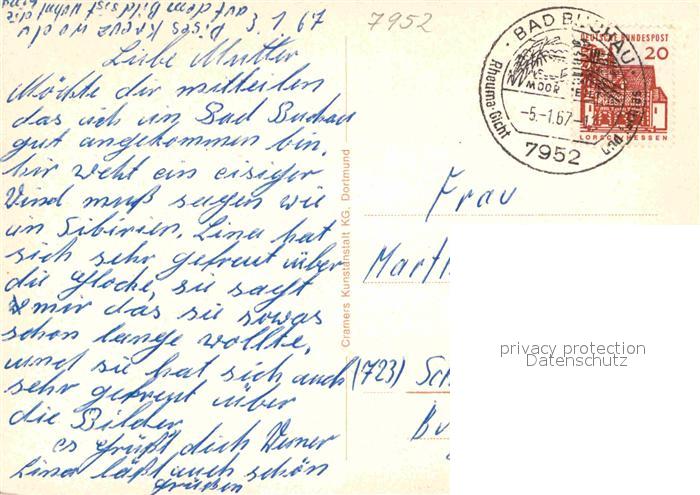 3.1.67
Liebe Mutter
Möchte dir mitteilen
das ich in Bad Buchau
gut angekommen bin.
hir weht ein eisiger
Vind muß sagen wie
in Sibirien. Lina hat
sich sehr gefreut über
die Gloche, sie sagt
mir das sie sowas
schon lange wollte,
und sie hat sich auch
sehr gefreut über
die Bilder
es grüßt dich Werner
Lina läßt auch schön
grüßen
Dises Kreuz wo du
auf dem Bild sist wohnt die
Cramers Kunstanstalt KG. Dortmund
7952
BAD BUCHAU
MOOR
Rheuma-Gicht
-5.-1.67-1
7952
DEUTSCHE BUNDESPOST
20
LORSCH/HESSEN
Frau
Mart
(723) Sch
privacy protection
Datenschutz